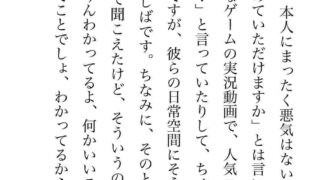 本人にまったく悪気はない
ていただけますか」とは言
ゲームの実況動画で、人気
」と言っていたりして、ち
すが、彼らの日常空間にそ
しばです。ちなみに、そのと
て聞こえたけど、そういうの
んわかってるよ、何かいいろ
ことでしょ、わかってるから